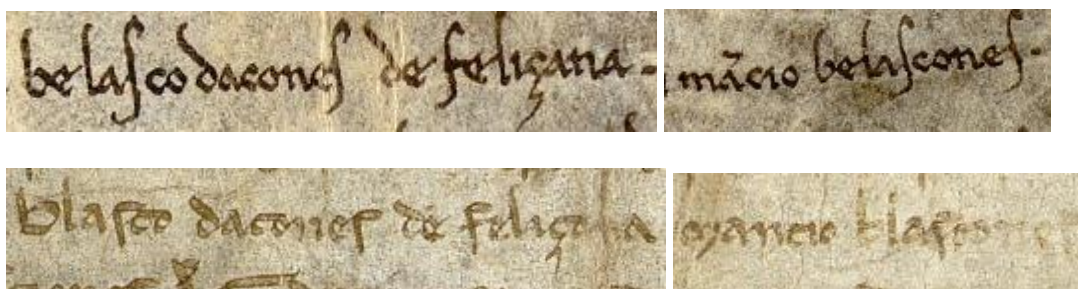 belasco dacones de feliçana. mãcio belascones.
blasco dacones de feliçana mancio blascones